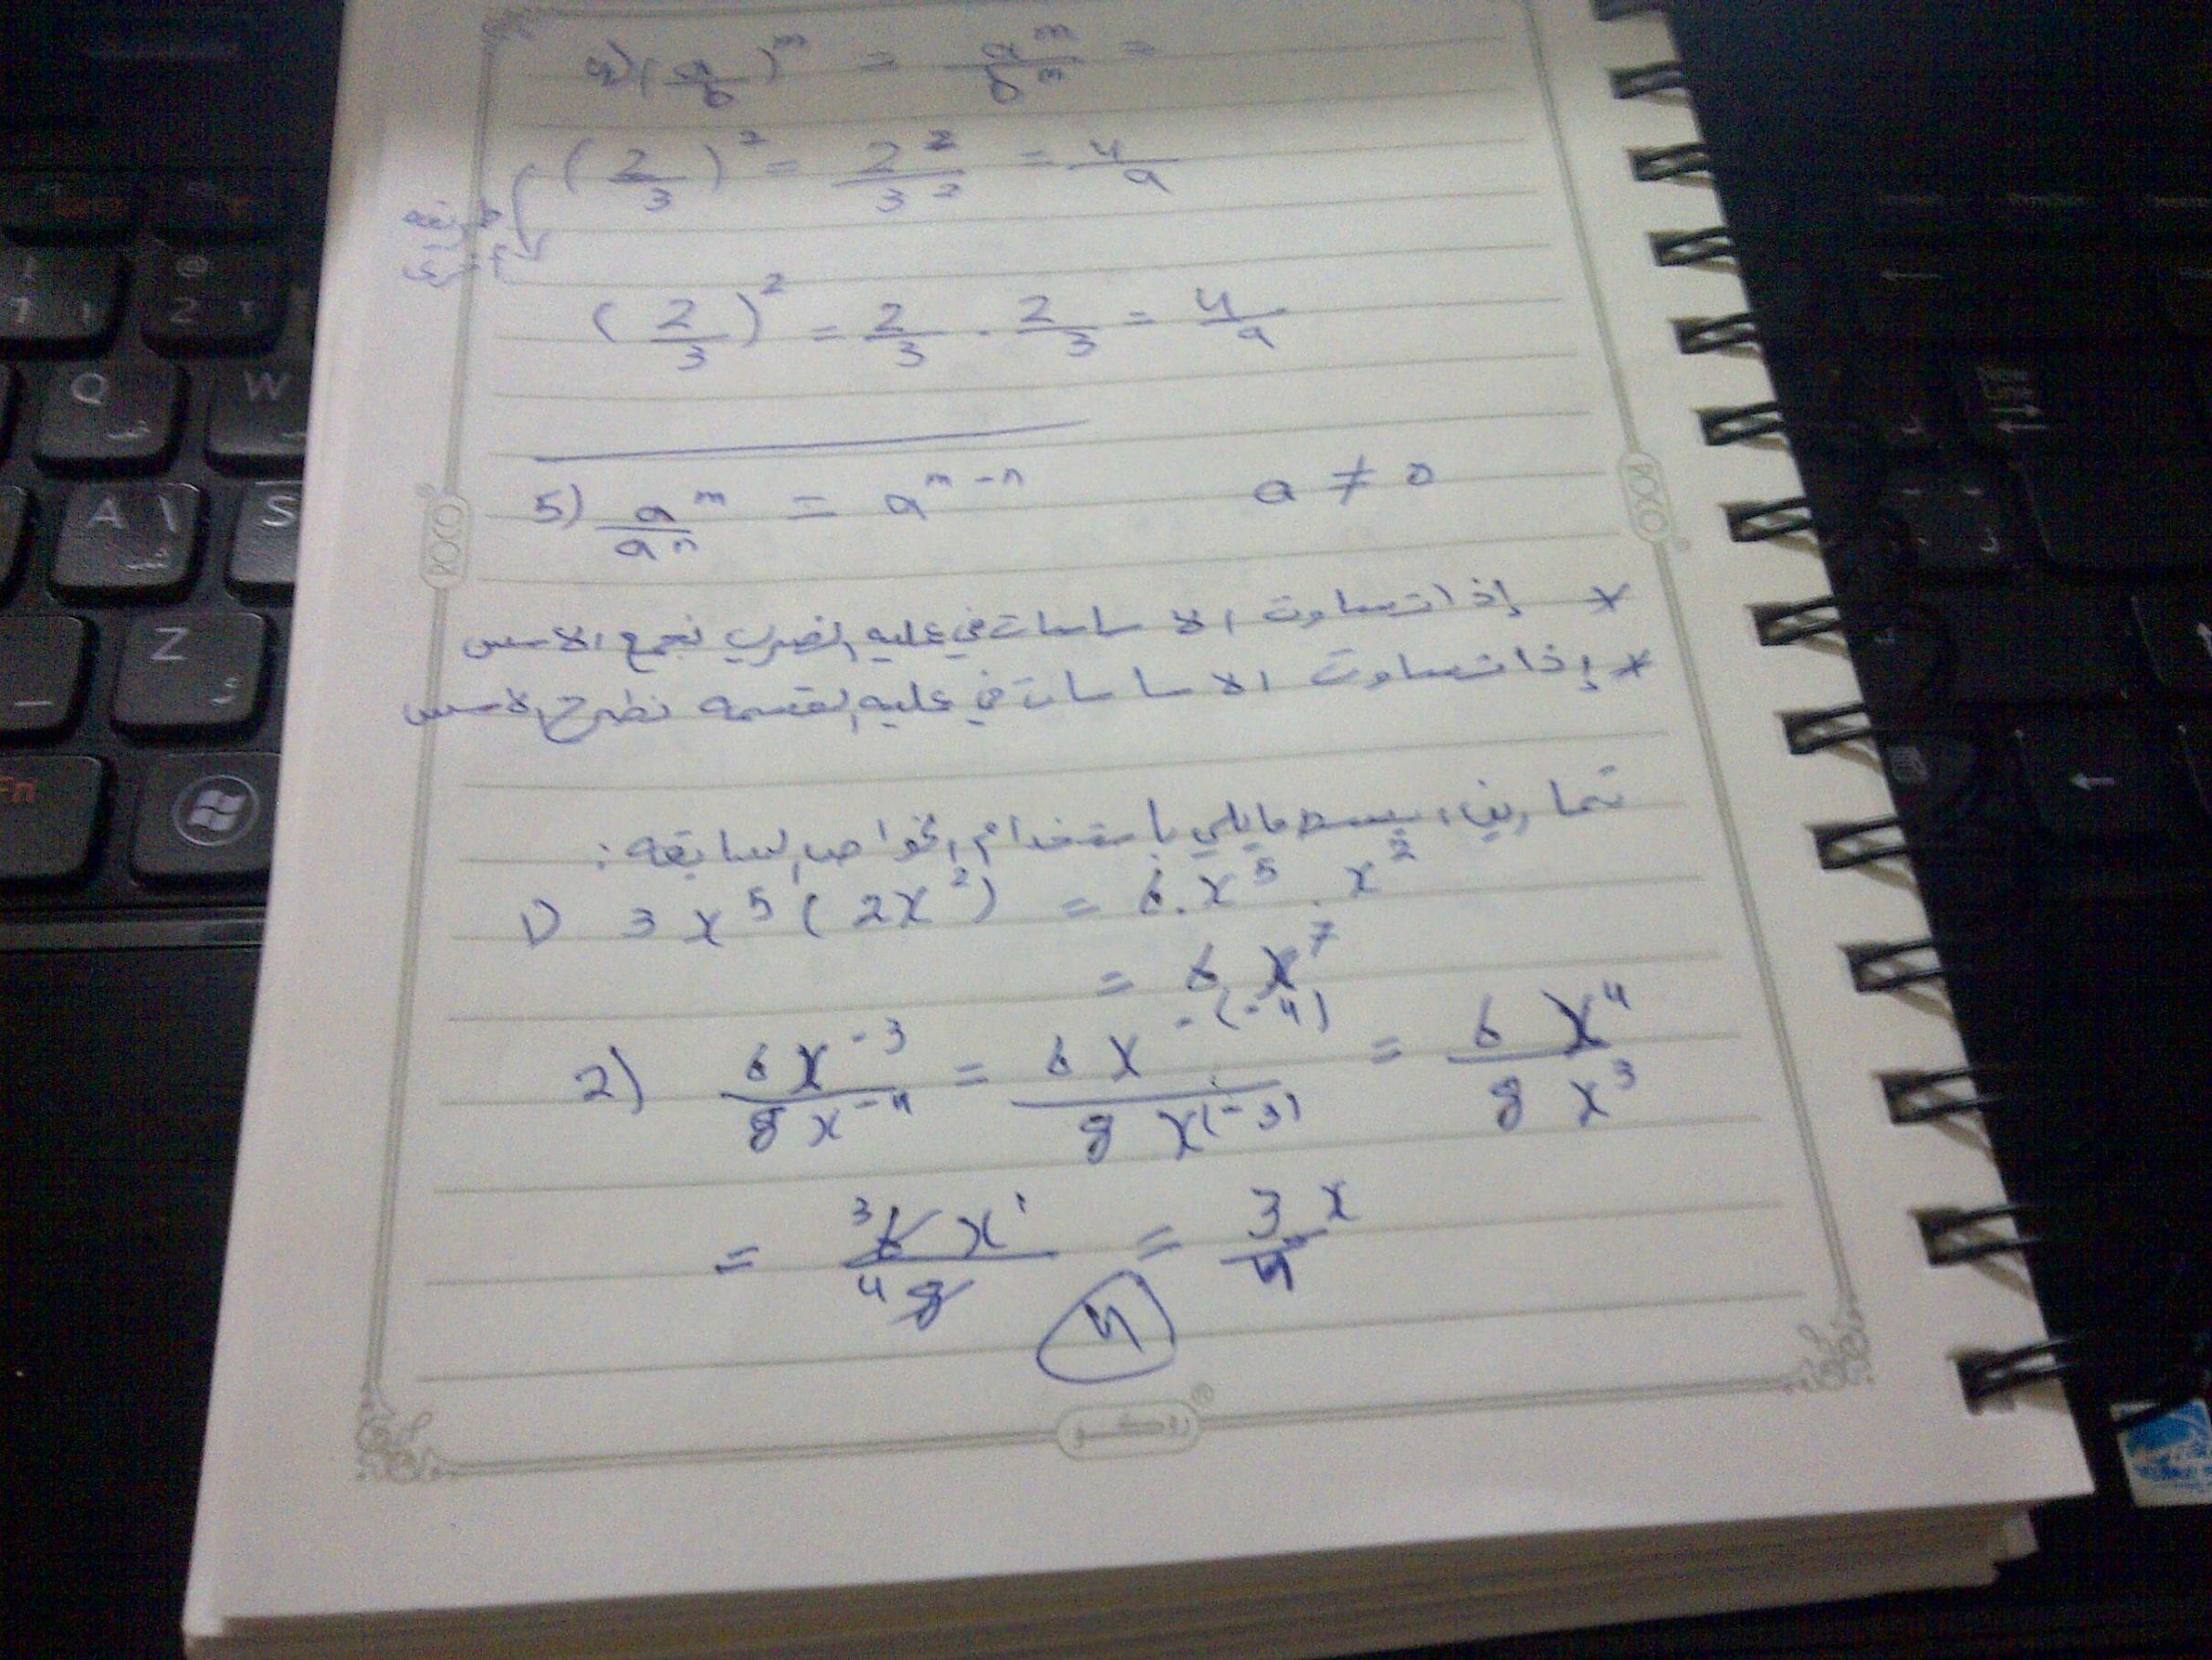 4) (a/b)^m = a^m/b^m =
(2/3)^2 = 2^2/3^2 = 4/9
(2/3)^2 = 2/3 . 2/3 = 4/9
5) a^m/a^n = a^(m-n) a ≠ 0
* إذا تساوت الاساسات في عليه الضرب نجمع الاسس
* إذا تساوت الاساسات في عليه القسمه نطرح الاسس
تمارين، بسط مايلي باستخدام الخواص السابقه:
1) 3x^5(2x^2) = 6.x^5 . x^2
= 6x^7
2) 6x^-3/8x^-4 = 6x^-(-4)/8x^(-3) = 6x^4/8x^3
= ^3 6x^1/^4 8 = 3x/4
4
ROCO
ROCO
روكو
Q ض
W
A ش
S
Z
Fn
@ 2
1